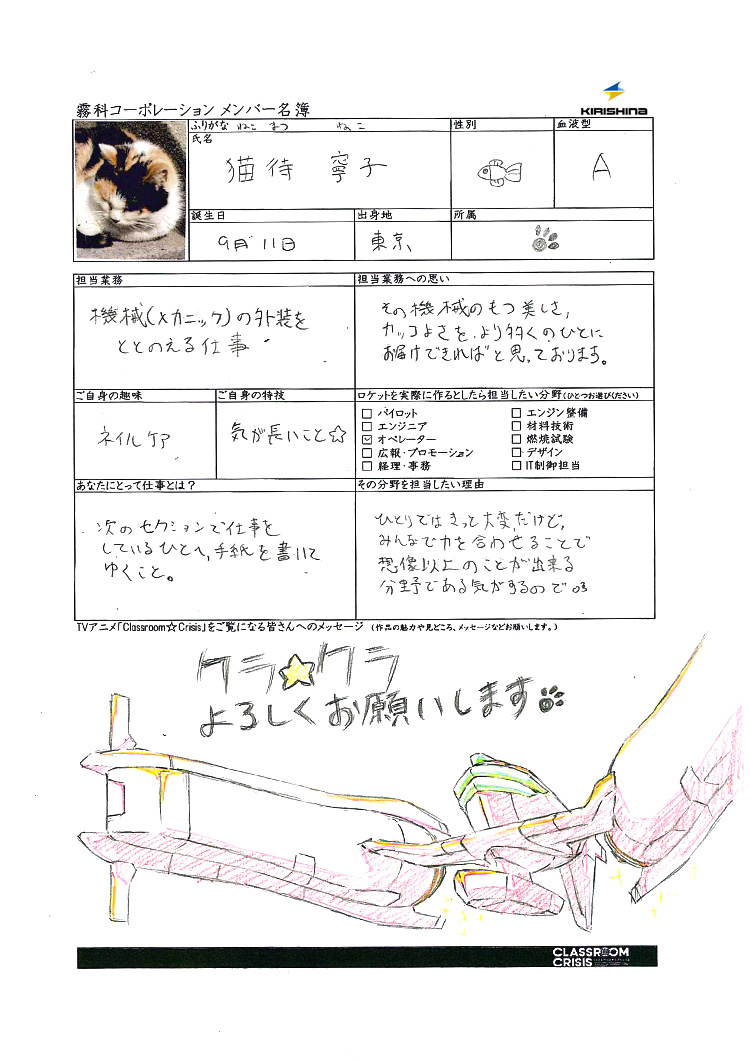 KIRISHINA
霧科コーポレーション メンバー名簿
ふりがな ねこ まつ ねこ
性別
血液型
氏名
猫待 寧子
A
誕生日
出身地
所属
9月11日
東京
担当業務
担当業務への思い
機械(メカニック)の外装を
ととのえる仕事
その機械のもつ美しさ,
カッコよさを、より多くのひとに
お届けできればと思っております。
ご自身の趣味
ご自身の特技
ロケットを実際に作るとしたら担当したい分野(ひとつお選びください)
ネイルケア
気が長いこと☆
□ パイロット
□ エンジニア
☑ オペレーター
□ 広報・プロモーション
□ 経理・事務
□ エンジン整備
□ 材料技術
□ 燃焼試験
□ デザイン
□ IT制御担当
あなたにとって仕事とは?
その分野を担当したい理由
次のセクションで仕事を
しているひとへ,手紙を書いて
ゆくこと。
ひとりではきっと大変だけど,
みんなで力を合わせることで
想像以上のことが出来る
分野である気がするので
TVアニメ「Classroom☆Crisis」をご覧になる皆さんへのメッセージ (作品の魅力や見どころ、メッセージなどお願いします。)
クラ☆クラ
よろしくお願いします
CLASSROOM
CRISIS